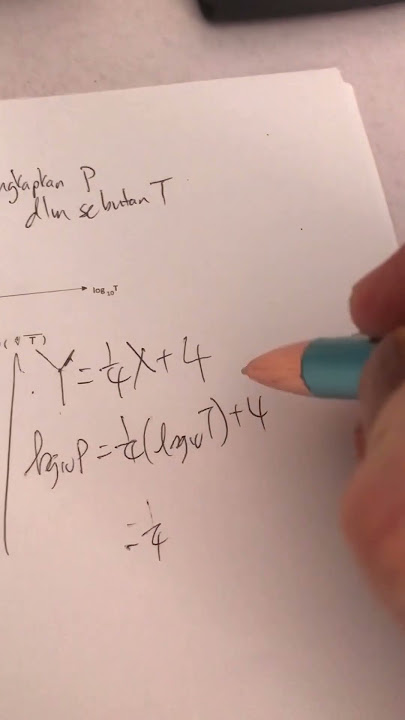 ngkapkan P
dlm sebutan T
log₁₀T
(∜T)
Y = 1/4 X + 4
log₁₀P = 1/4 (log₁₀T) + 4
= 1/4